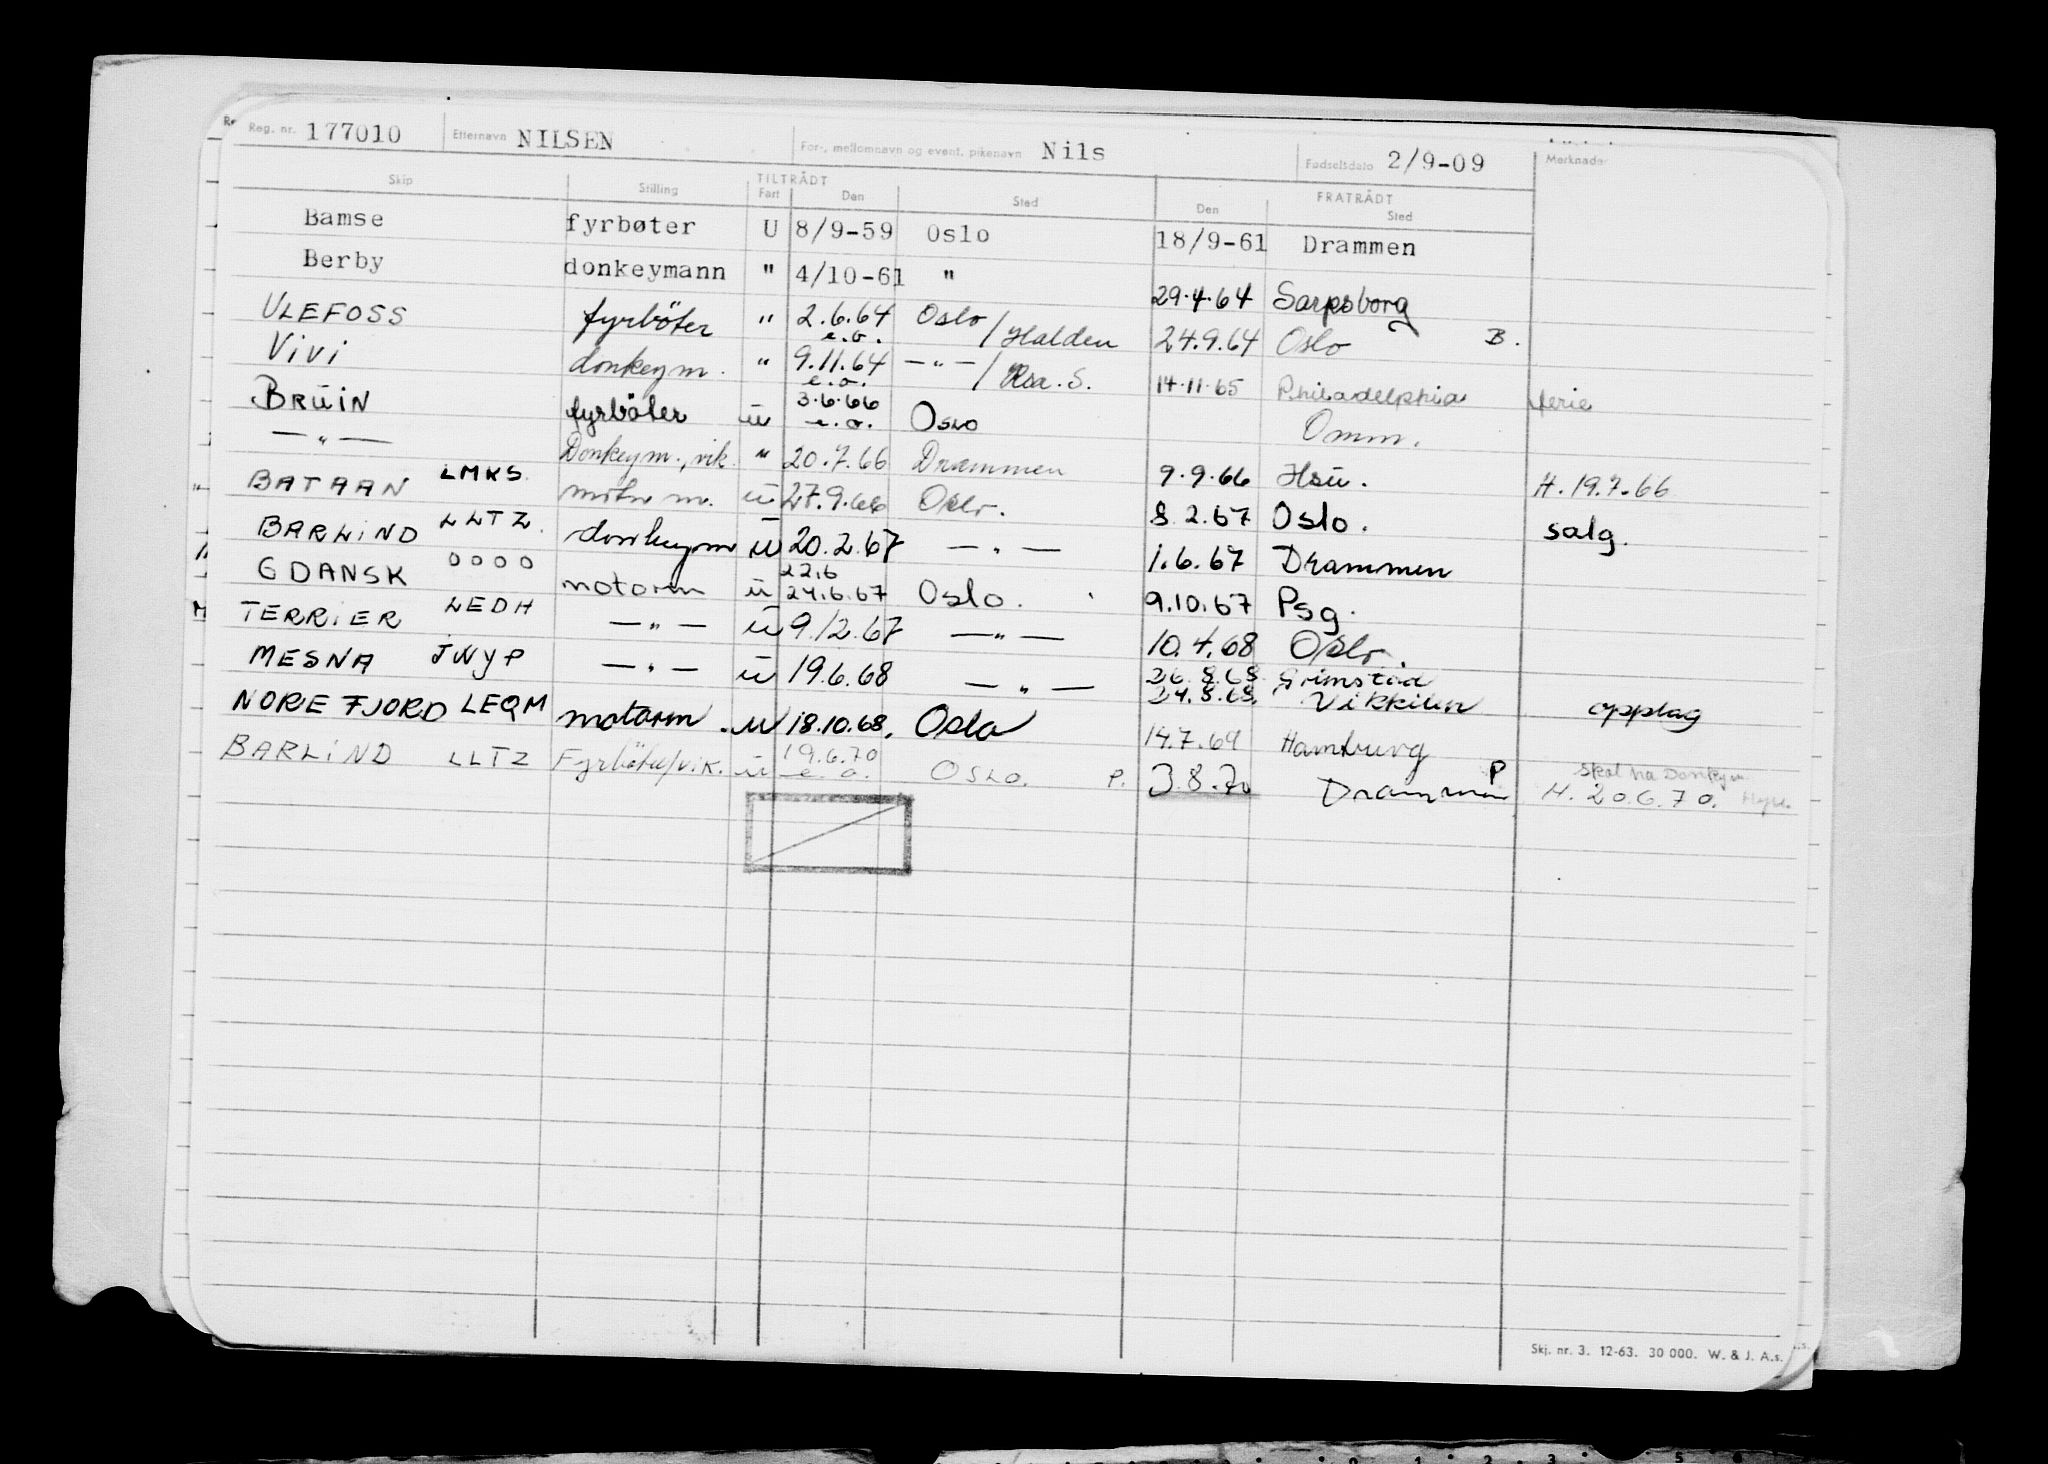 Reg. nr. 177010 Etternavn NILSEN For-, mellomnavn og event. pikenavn Nils Fødselsdato 2/9-09 Merknader
Skip Stilling TILTRÅDT Fart Den Sted FRATRÅDT Den Sted
Bamse fyrbøter U 8/9-59 Oslo 18/9-61 Drammen
Berby donkeymann " 4/10-61 " 29.4.64 Sarpsborg
ULEFOSS fyrböter " 2.6.64 e.o. Oslo / Halden 24.9.64 Oslo B.
Vivi donkeym. " 9.11.64 e.o. — " — / Rsa. S. 14.11.65 Philadelphia ferie
BRUIN fyrböter u 3.6.66 e.o. Oslo Omm.
— " — Donkeym., vik. " 20.7.66 Drammen 9.9.66 Hsu. H. 19.7.66
BATAAN LMKS motorm. u 27.9.66 Oslo. 8.2.67 Oslo. salg.
BARLIND LLTZ. donkeym u 20.2.67 — " — 1.6.67 Drammen
GDANSK OOOO motorm u 22.6 24.6.67 Oslo. 9.10.67 Psg.
TERRIER LEDH — " — u 9.12.67 — " — 10.4.68 Oslo.
MESNA JWYP — " — u 19.6.68 — " — 26.8.68 Grimstad
24.8.68. Vikkilen opplag
NOREFJORD LEQM motorm. u 18.10.68. Oslo 14.7.69 Hamburg
BARLIND LLTZ Fyrböter/vik. u 19.6.70 e.o. OSLO. P. 3.8.70 Drammen P Skal ha Donkeym. H. 20.6.70.
Skj. nr. 3. 12-63. 30 000. W. & J. A.s.